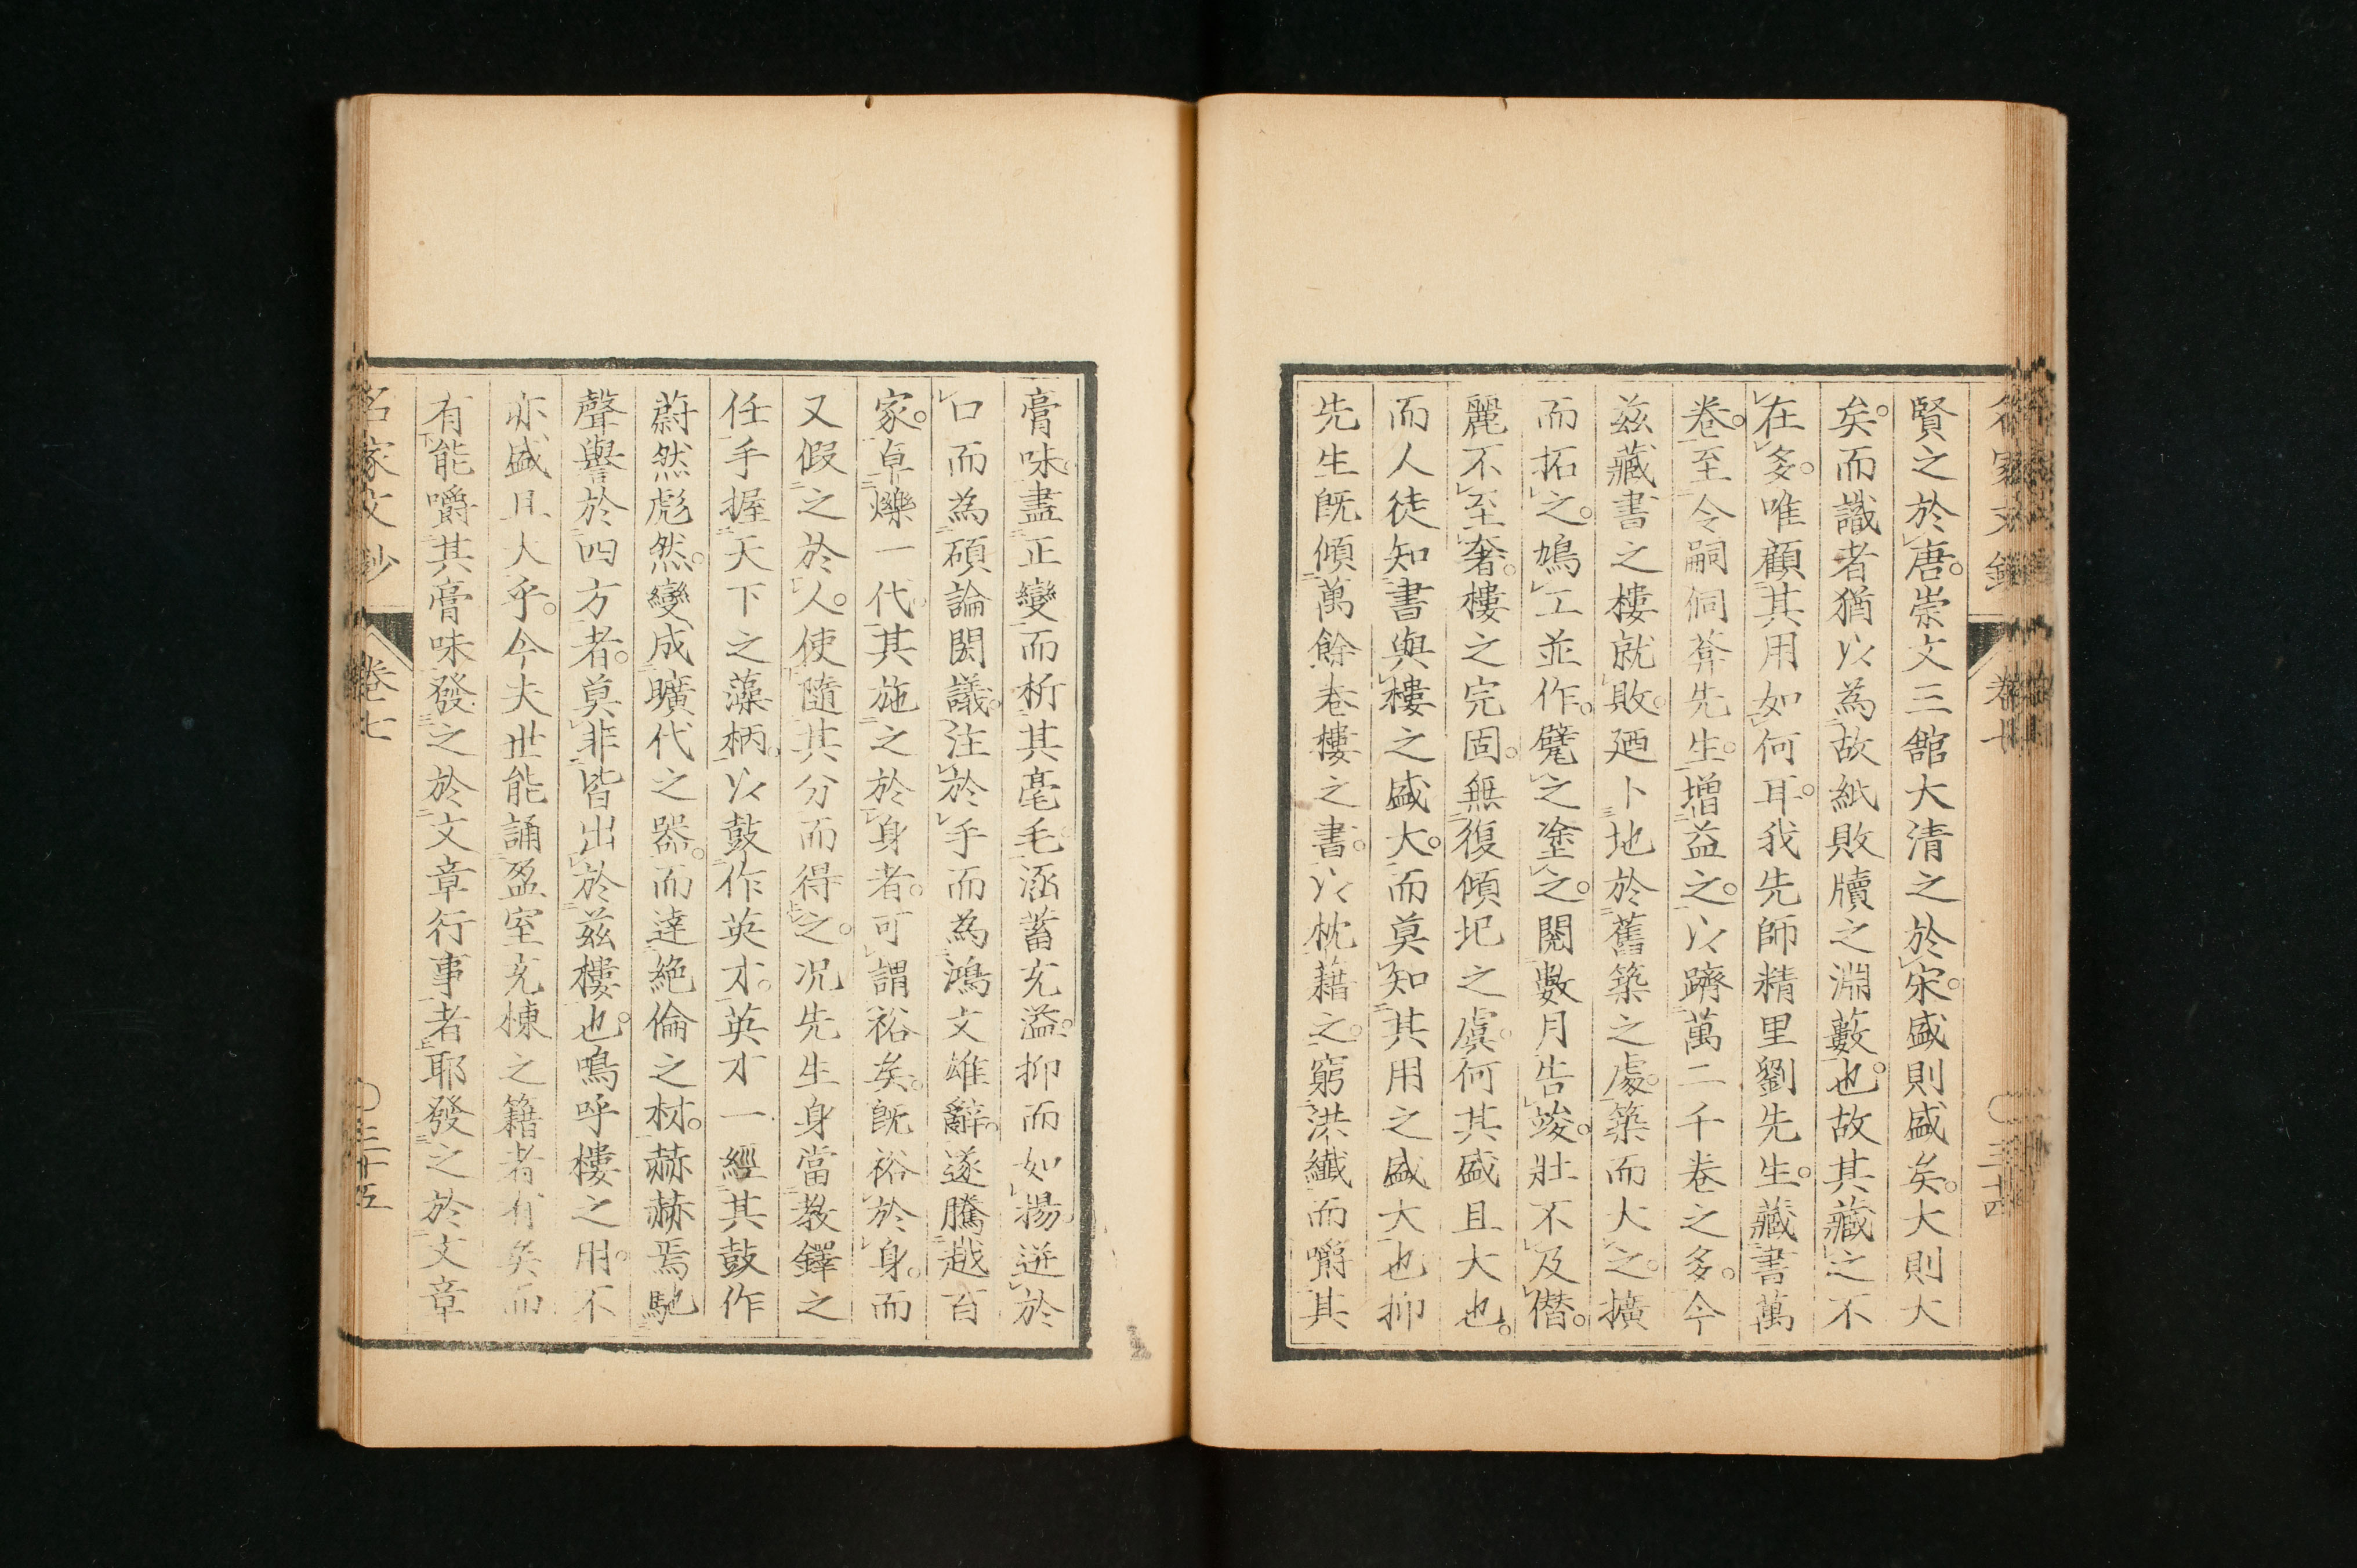 賢之於唐。崇文三館大清之於宋。盛則盛矣。大則大
矣。而識者猶以為故紙敗牘之淵藪也。故其藏之不
在多。唯顧其用如何耳。我先師精里劉先生。藏書萬
卷。至令嗣侗菴先生。增益之。以躋萬二千卷之多。今
茲藏書之樓就敗。廼卜地於舊築之處。築而大之。擴
而拓之。鳩工並作。甓之塗之。閱數月告竣。壯不及僭。
麗不至奢。樓之完固。無復傾圮之虞。何其盛且大也。
而人徒知書與樓之盛大。而莫知其用之盛大也抑
先生既傾萬餘卷樓之書。以枕藉之。窮洪纖而嚼其
名家文鈔 卷七 三十四
膏味。盡正變而析其毫毛。涵蓄充溢。抑而如揚迸於
口而為碩論閎議。注於手而為鴻文雄辭。遂騰越百
家。卓爍一代。其施之於身者。可謂裕矣。既裕於身。而
又假之於人。使隨其分而得之。况先生身當教鐸之
任手握天下之藻柄。以鼓作英才。英才一經其鼓作
蔚然彪然。變成曠代之器。而達絕倫之材。赫赫焉馳
聲譽於四方者。莫非皆出於茲樓也。嗚呼樓之用。不
亦盛且大乎。今夫世能誦盈室充棟之籍者有矣而
有能嚼其膏味發之於文章行事者耶發之於文章
名家文鈔 卷七 三十五